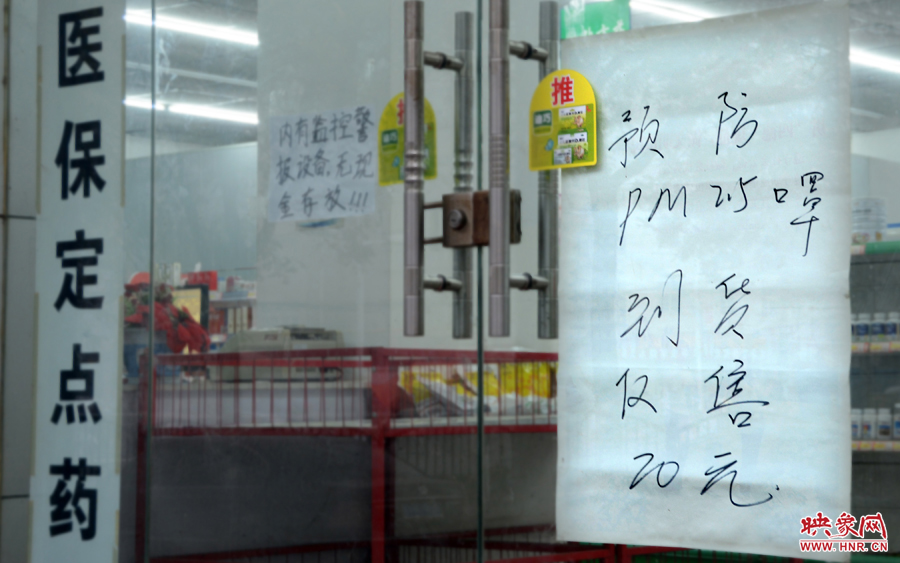 医保定点药
内有监控警
报设备,无现
金存放!!!
推
预防
PM2.5口罩
到货
仅售
20元.
映象网
WWW.HNR.CN